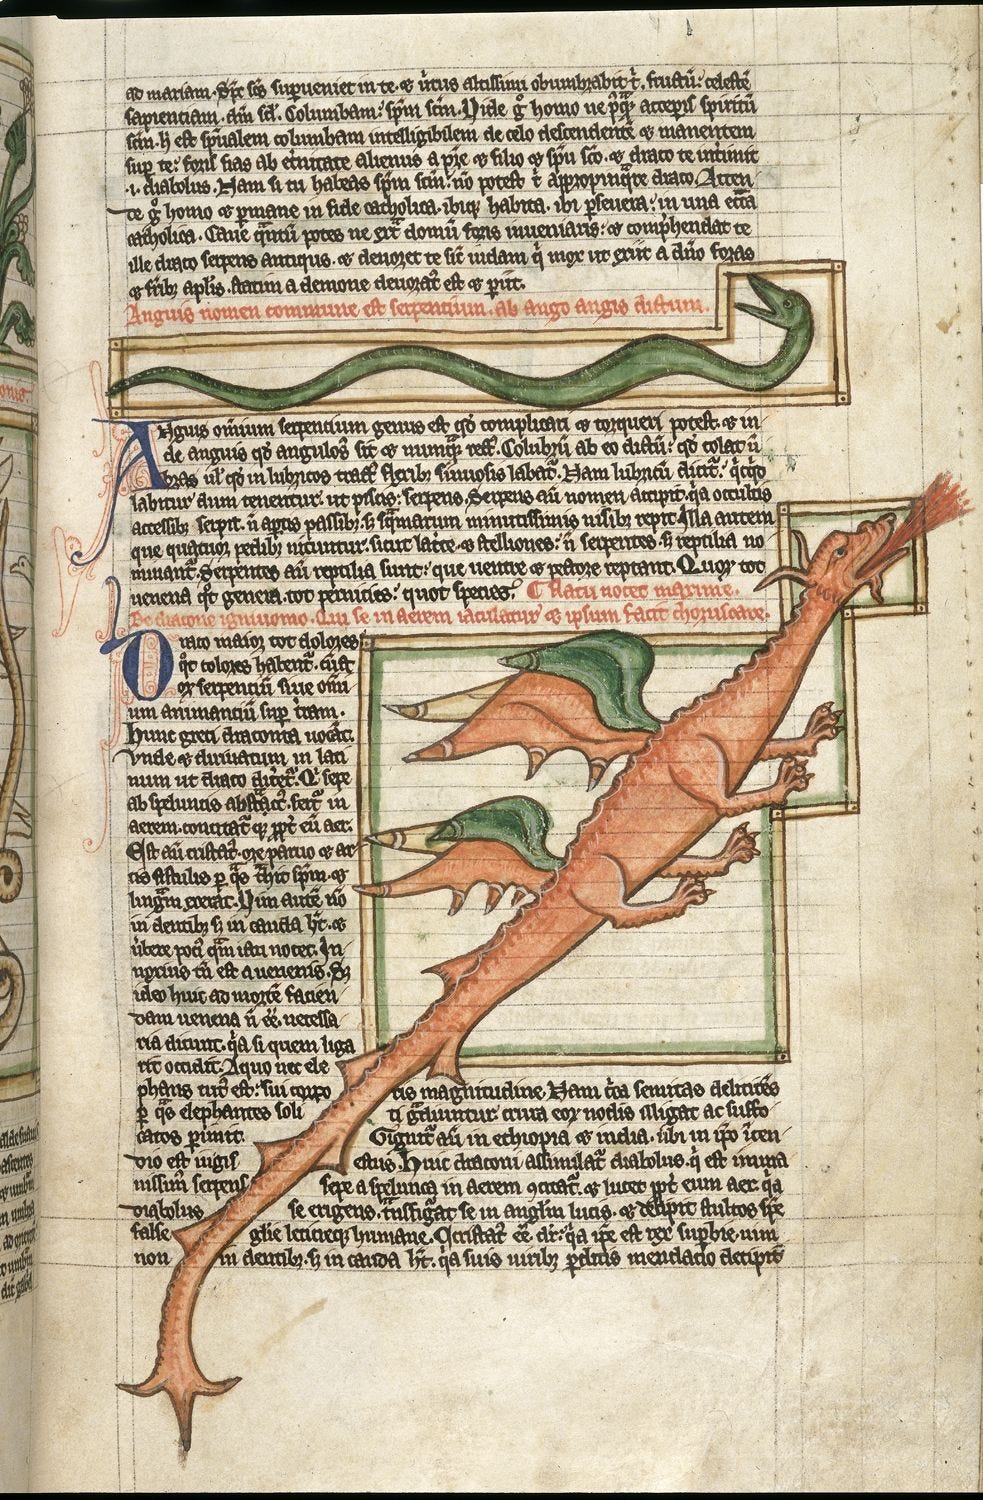 ad mariam. Sp̄c sc̄s superueniet in te. ⁊ uirtus altissimi obumbrabit t̄. fructū: celestē
sapienciam. dn̄i sc̄i. Columbam: sp̄m sc̄m. Vide g̊ homo ne accepis spiritū
sc̄m. h̄ est sp̄ualem columbam intelligibilem de celo descendentē ⁊ manentem
sup te: foris fias ab et̄nitate alienus a pr̄e ⁊ filio ⁊ sp̄u sc̄o. ⁊ draco te int̄imit
.i. diabolus. Nam si tu habeas sp̄m sc̄m: nō potest t̄ appropinq̄re draco. Atten
te g̊ homo ⁊ p̄mane in fide catholica. ibiq habita. ibi p̄seuera: in una eccl̄a
catholica. Caue q̄ntū potes ne ext̄ domū foris inueniaris: ⁊ comp̄hendat te
ille draco serpens antiqus. ⁊ deuoret te sic̄ iudam q̇ mox ut exiit a dn̄o foras
⁊ fr̄ib; aplis. statim a demone deuorat̄ est ⁊ p̄iit.
Anguis nomen commune est serpentium. ab ango angis dictum.
Anguis omnium serpencium genus est qd̊ complicari ⁊ torqueri potest. ⁊ in
de anguis qd̊ angulos̄ sit ⁊ numq̄ rect̄. Colubrū ab eo dictū: qd̊ colat ū
bras ul̄ qd̊ in lubricos tract̄ flexib; sinuosis labat̄. Nam lubricū dicit̄: q̇cqd
labitur dum tenentur. ut piscis: serpens. Serpens aū nomen accipit. q̇a occultis
accessib; serpit. n̄ aptis passib; s; sq̄marum minutissimis nisib; repit. Illa autem
que quatuor pedib; nituntur. sicut lac̄te. ⁊ stelliones: n̄ serpentes. s; reptilia no
minant̄. Serpentes aū reptilia sunt: que uentre ⁊ pectore reptant. Quor̄ tot
uenena qt̊ genera. tot pernicies: quot species.
flatu nocet maxime.
De dracone igniuomo. Qui se in aerem iaculatur ⁊ ipsum facit choruscare.
tot dolores
qt̊ colores habent̄.
Draco maior cunct
or̄ serpentiū siue omī
um animanciū sup t̄ram.
Hunc greci draconta uocāt.
Vnde ⁊ diriuatum in lati
num ut draco dicet̄. Q̇ sepe
ab speluncis abstract̄. fert̄ in
aerem. concitat̄q; ppt̄ eū aer.
Est aū cristat̄. ore paruo ⁊ ar
tis fistulis p q̄s t̄hit sp̄m. ⁊
lingūm exerat. Vim autē nō
in dentib; s; in cauda h̄t. ⁊
ūbere poci q̄m ictu nocet. In
noxius tn̄ est a uenenis. S;
ideo huic ad mortē facien
dam uenena n̄ ēē necessa
ria dicunt. q̇a si quem liga
rit occidit. A quo nec ele
phans tut̄ est: sui corpo ris magnitudine. Nam c̄ca semitas delitescēs
p q̄s elephantes soli ti g̊diuntur crura eor̄ nodis illigat ac suffo
catos perimit. Gignit̄ aū in ethiopia ⁊ india. ubi in ip̄o incen
dio est iugis estus. Huic draconi assimilat̄ diabolus. q̇ est imma
nissimus serpens sepe a spelunca in aerem ɔcitat̄. ⁊ lucet ppt̄ eum aer. q̇a
diabolus se erigens. t̄nsfigat̄ se in anglm̄ lucis. ⁊ decipit stultos spe
false glīe leticieq; humane. Cristat̄ ēē dr̄: q̇a ip̄e est rex superbie. uim
non in dentib; s; in cauda h̄t. q̇a suis uirib; p̄ditis mendacio decipit